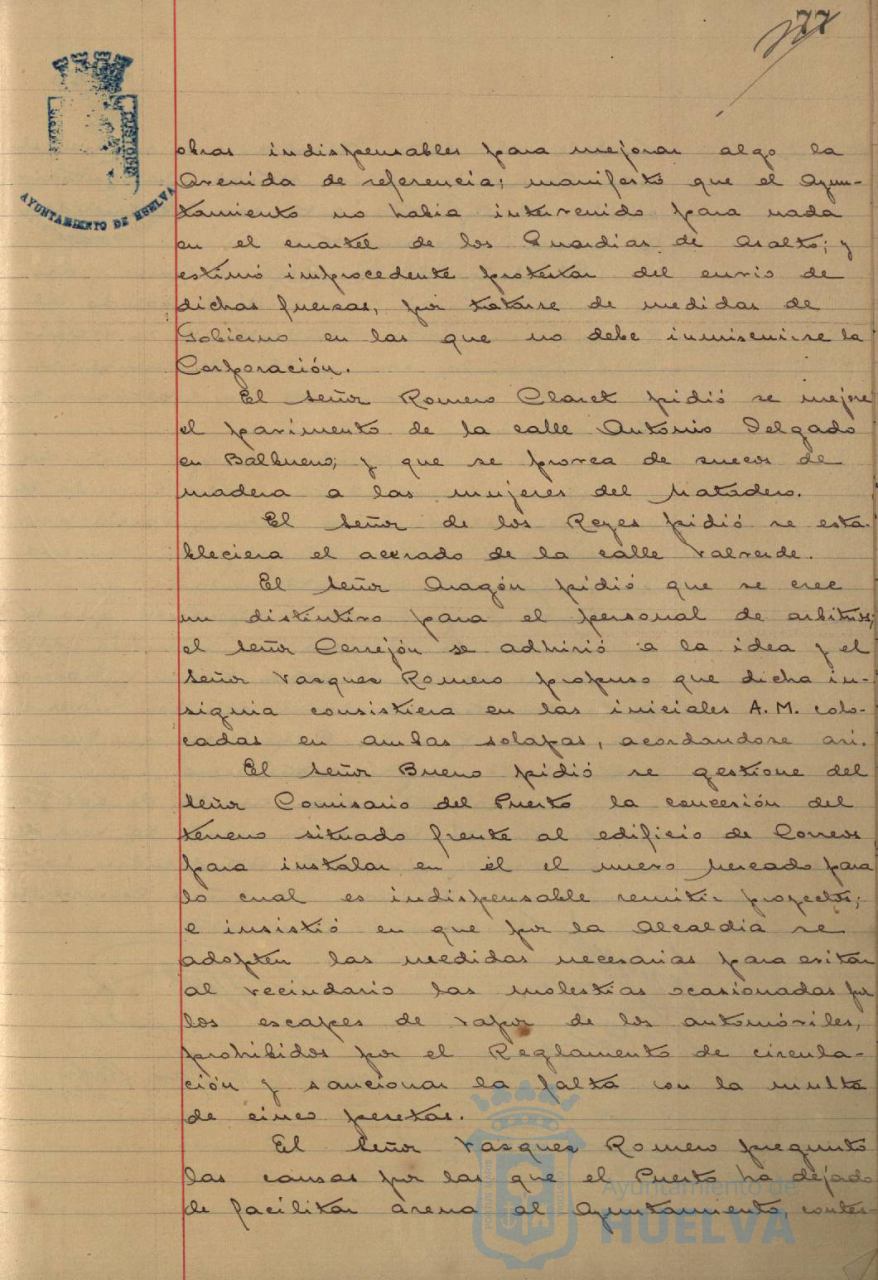 77
AYUNTAMIENTO DE HUELVA
obras indispensables para mejorar algo la
Avenida de referencia; manifestó que el Ayun-
tamiento no había intervenido para nada
en el cuartel de los Guardias de Asalto; y
estimó improcedente protestar del envio de
dichas fuersas, por tratarse de medidas de
Gobierno en las que no debe inmiscuirse la
Corporación.
El señor Romero Claret pidió se mejore
el pavimento de la calle Antonio Delgado
en Balbueno; y que se provea de suecos de
madera a las mujeres del Matadero.
El señor de los Reyes pidió se esta-
bleciera el acerado de la calle Valverde.
El señor Aragón pidió que se cree
un distintivo para el personal de arbitrios;
el señor Cerrejón se adhirió a la idea y el
señor Vasques Romero propuso que dicha in-
signia consistiera en las iniciales A. M. colo-
cadas en ambas solapas, acordandose asi.
El señor Bueno pidió se gestione del
señor Comisario del Puerto la concesión del
terreno situado frente al edificio de Correos
para instalar en él el nuevo Mercado para
lo cual es indispensable remitir proyectos;
e insistió en que por la Alcaldía se
adopten las medidas necesarias para evitar
al vecindario las molestias ocasionadas por
los escapes de vapor de los automóviles,
prohibidos por el Reglamento de circula-
ción y sancionar la falta con la multa
de cinco pesetas.
El señor Vasques Romero preguntó
las causas por las que el Puerto ha dejado
de facilitar arena al Ayuntamiento, contes-
Ayuntamiento de
HUELVA